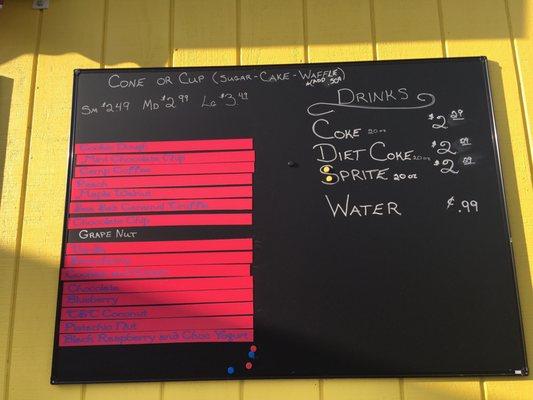 Cone or Cup (Sugar-Cake-Waffle)
(ADD 50¢
Sm $2.49 Md $2.99 Lg $3.49
Cookie Dough
Mint Chocolate Chip
Camp Coffee
Peach
Maple Walnut
Sea Salt Caramel Truffle
Chocolate Chip
Grape Nut
Vanilla
Strawberry
Cookies and Cream
Chocolate
Blueberry
Coconut
Pistachio Nut
Black Raspberry and Choc Yogurt
Drinks
Coke 20oz $2.09
Diet Coke 20oz $2.09
Sprite 20oz $2.09
Water ¢.99